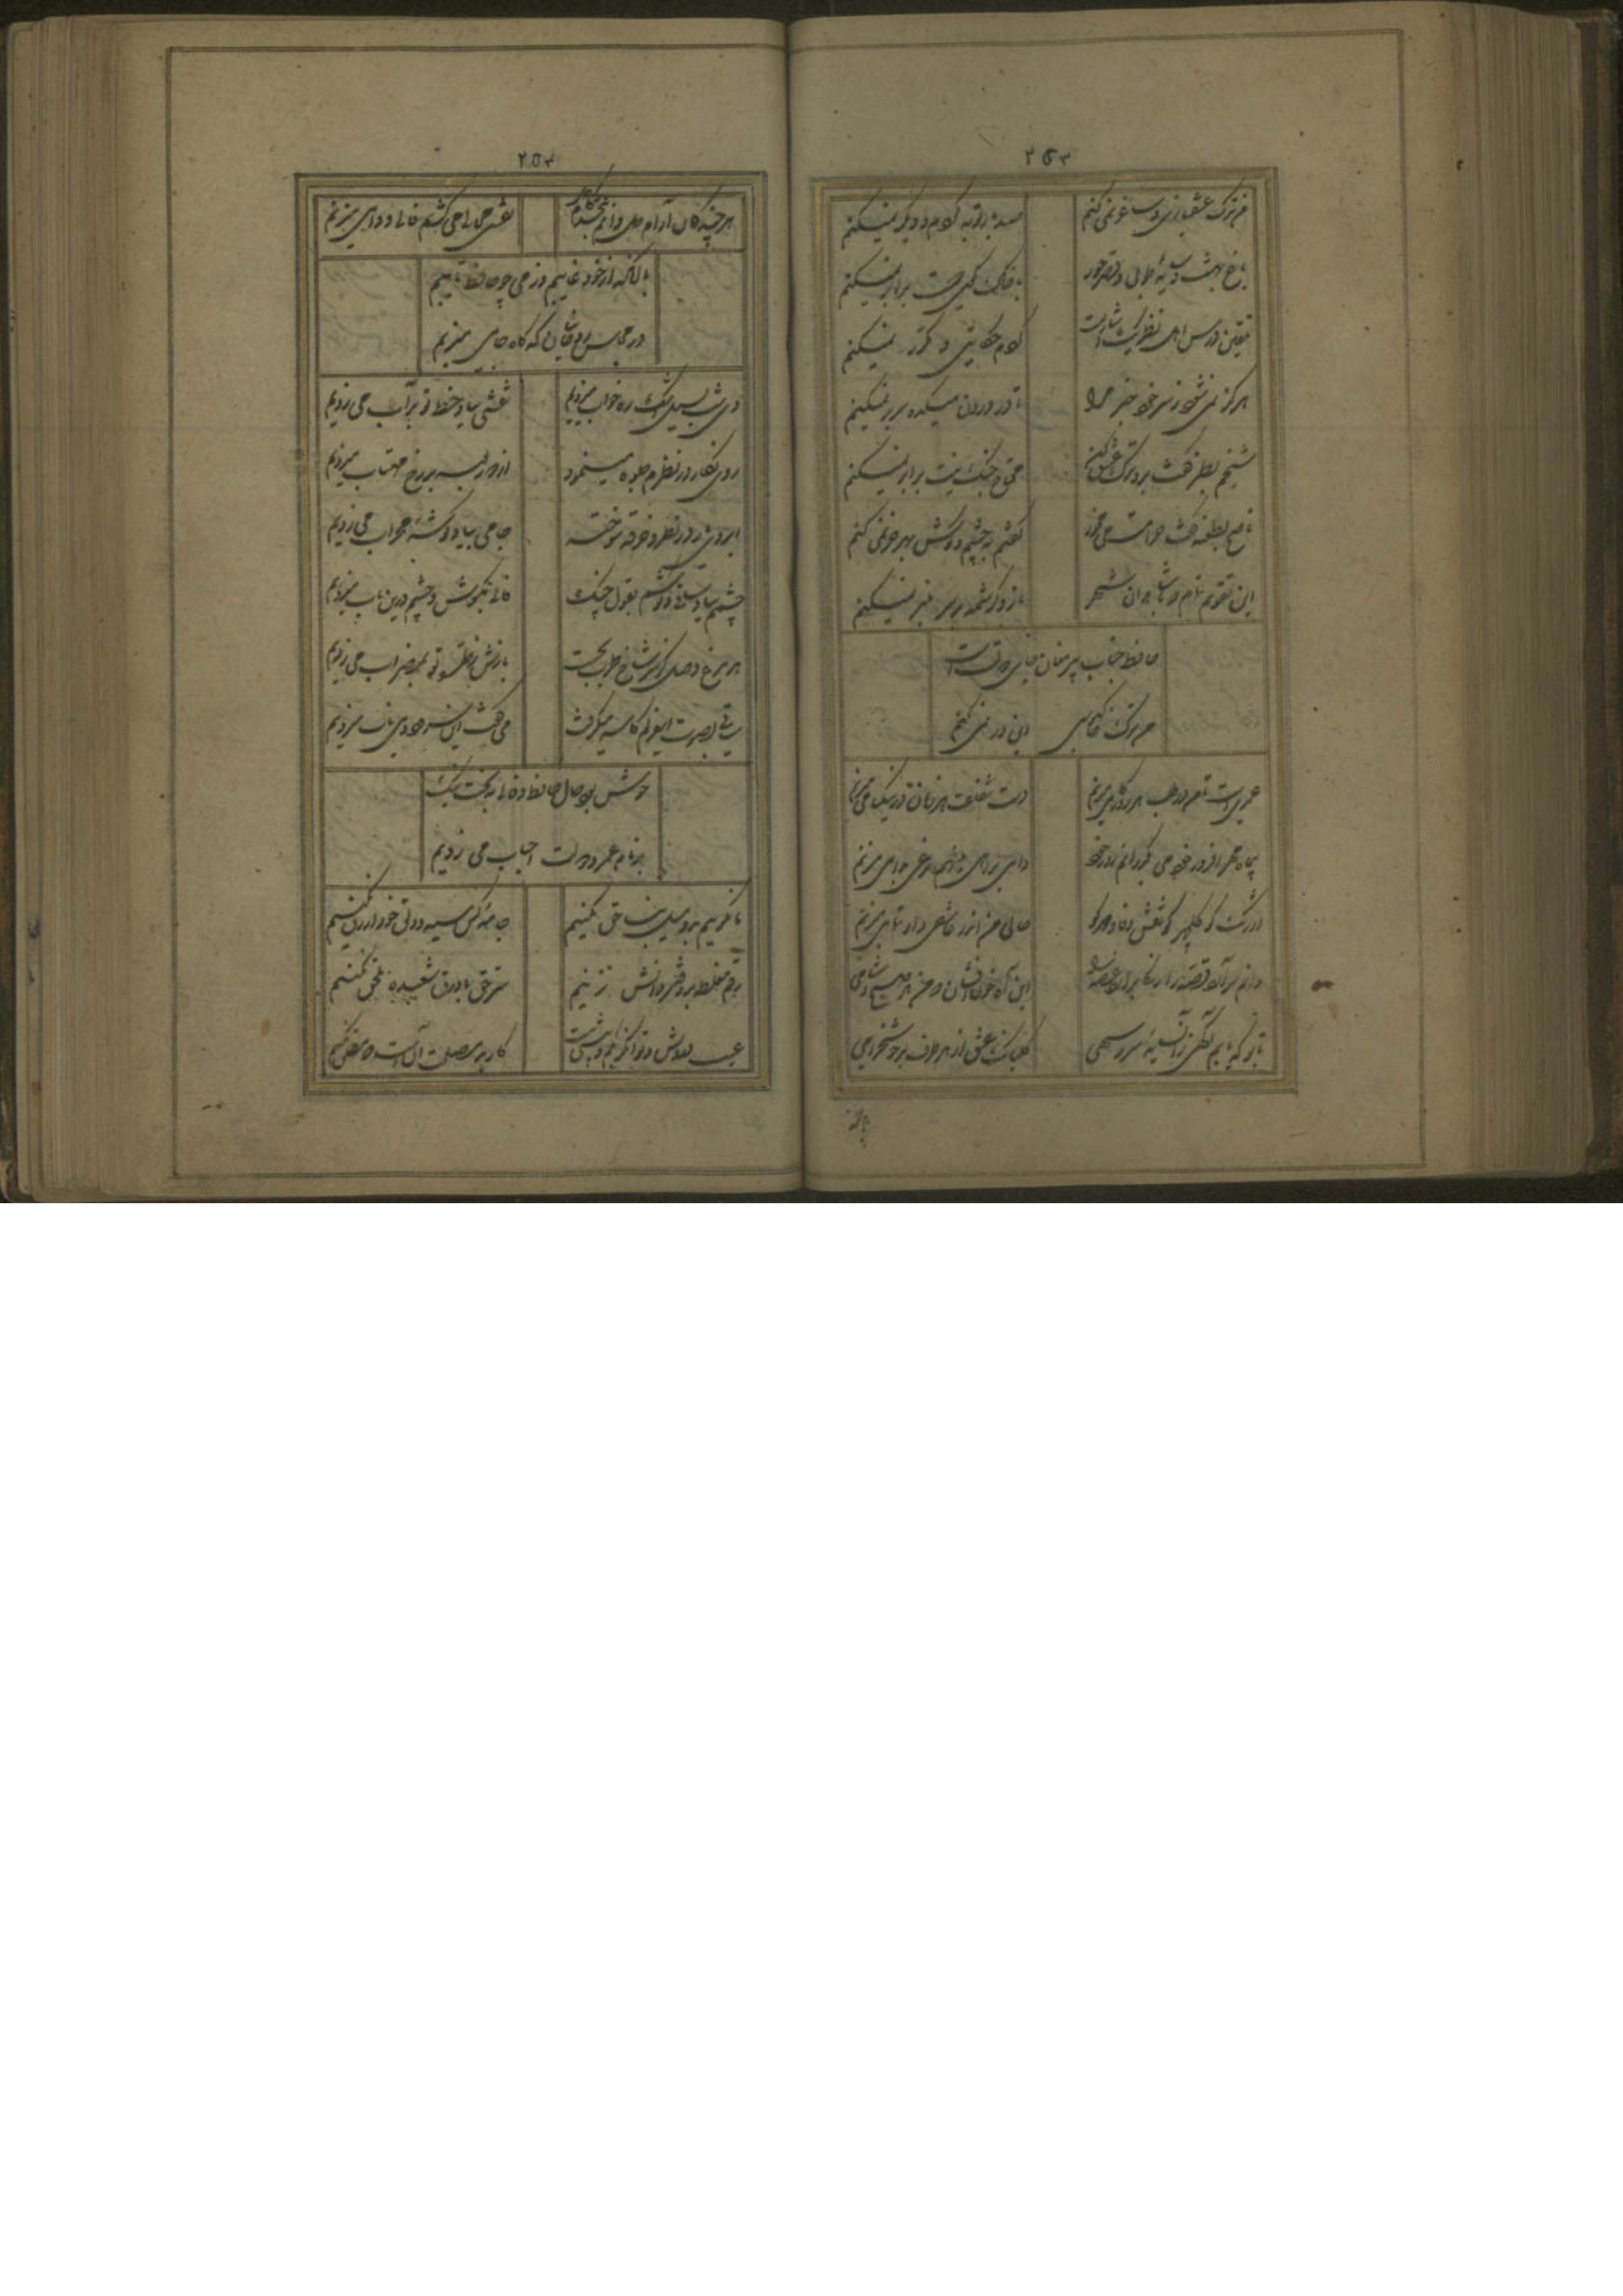 ۲۵۳
من ترک عشقبازی و ساغر نمی کنم
صد بار توبه کردم و دیگر نمیکنم
باغ بهشت و سایهٔ طوبی و قصر حور
با خاک کوی دوست برابر نمیکنم
تلقین درس اهل نظر یک اشارتست
کردم حکایتی و مکرر نمیکنم
هرگز نمی شود ز سر خود خبر مرا
تا در درون میکده سر بر نمیکنم
شیخم بطنز گفت برو ترک عشق کن
محتاج جنگ نیست برادر نمیکنم
ناصح بطعنه گفت حرامست می مخور
گفتم به چشم و گوش بهر خر نمی کنم
این تقویم تمام که با شاهدان شهر
ناز و کرشمه بر سر منبر نمیکنم
حافظ جناب پیر مغان جای دولتست
من ترک خاکبوسی این در نمی کنم
عمریست تا من در طلب هر روز گامی میزنم
دست شفاعت هر زمان در نیکنامی میزنم
بی ماه مهر افروز خود می گذرانم روز خود
دامی براهی می نهم مرغی بدامی میزنم
اورنگ کو گلچهر کو نقش وفا و مهر کو
حالی من اندر عاشقی داد تمامی میزنم
دانم سر آرد قصه را رنگین برآرد غصه را
این آه خون افشان که من هر صبح و شامی
تا بو که یابم آگهی از سایهٔ سرو سهی
گلبانگ عشق از هر طرف بر خوشخرامی
۲۵۴
هر چند کان آرام دل دانم نبخشد کام دل
نقش خیالی می کشم فال دوامی میزنم
با آنکه از خود غایبم وز می چو حافظ تایبم
در مجلس روحانیان گه گاه جامی میزنم
دی شب بسیل اشک ره خواب میزدیم
نقشی بیاد خط تو بر آب می زدیم
روی نگار در نظرم جلوه مینمود
از دور بوسه بر رخ مهتاب میزدیم
ابروی یار در نظر و خرقه سوخته
جامی بیاد گوشهٔ محراب می زدیم
چشمم بروی ساقی و گوشم بقول چنگ
فالی بگوش و چشم درین باب میزدیم
هر مرغ وصل کز سر شاخ طرب بجست
بازش ز طره تو بمضراب می زدیم
ساقی بصوت این غزلم کاسه میگرفت
می گفت این سرود و می ناب میزدیم
خوش بود حال حافظ و فالی ببخت نیک
بر نام عمر و دولت احباب می زدیم
ما نگوییم بد و میل بناحق نکنیم
جامهٔ کس سیه و دلق خود ازرق نکنیم
رقم مغلطه بر دفتر دانش نزنیم
سر حق با ورق شعبده ملحق نکنیم
عیب درویش و توانگر بکم و بیش بدست
کار بد مصلحت آنست که مطلق نکنیم